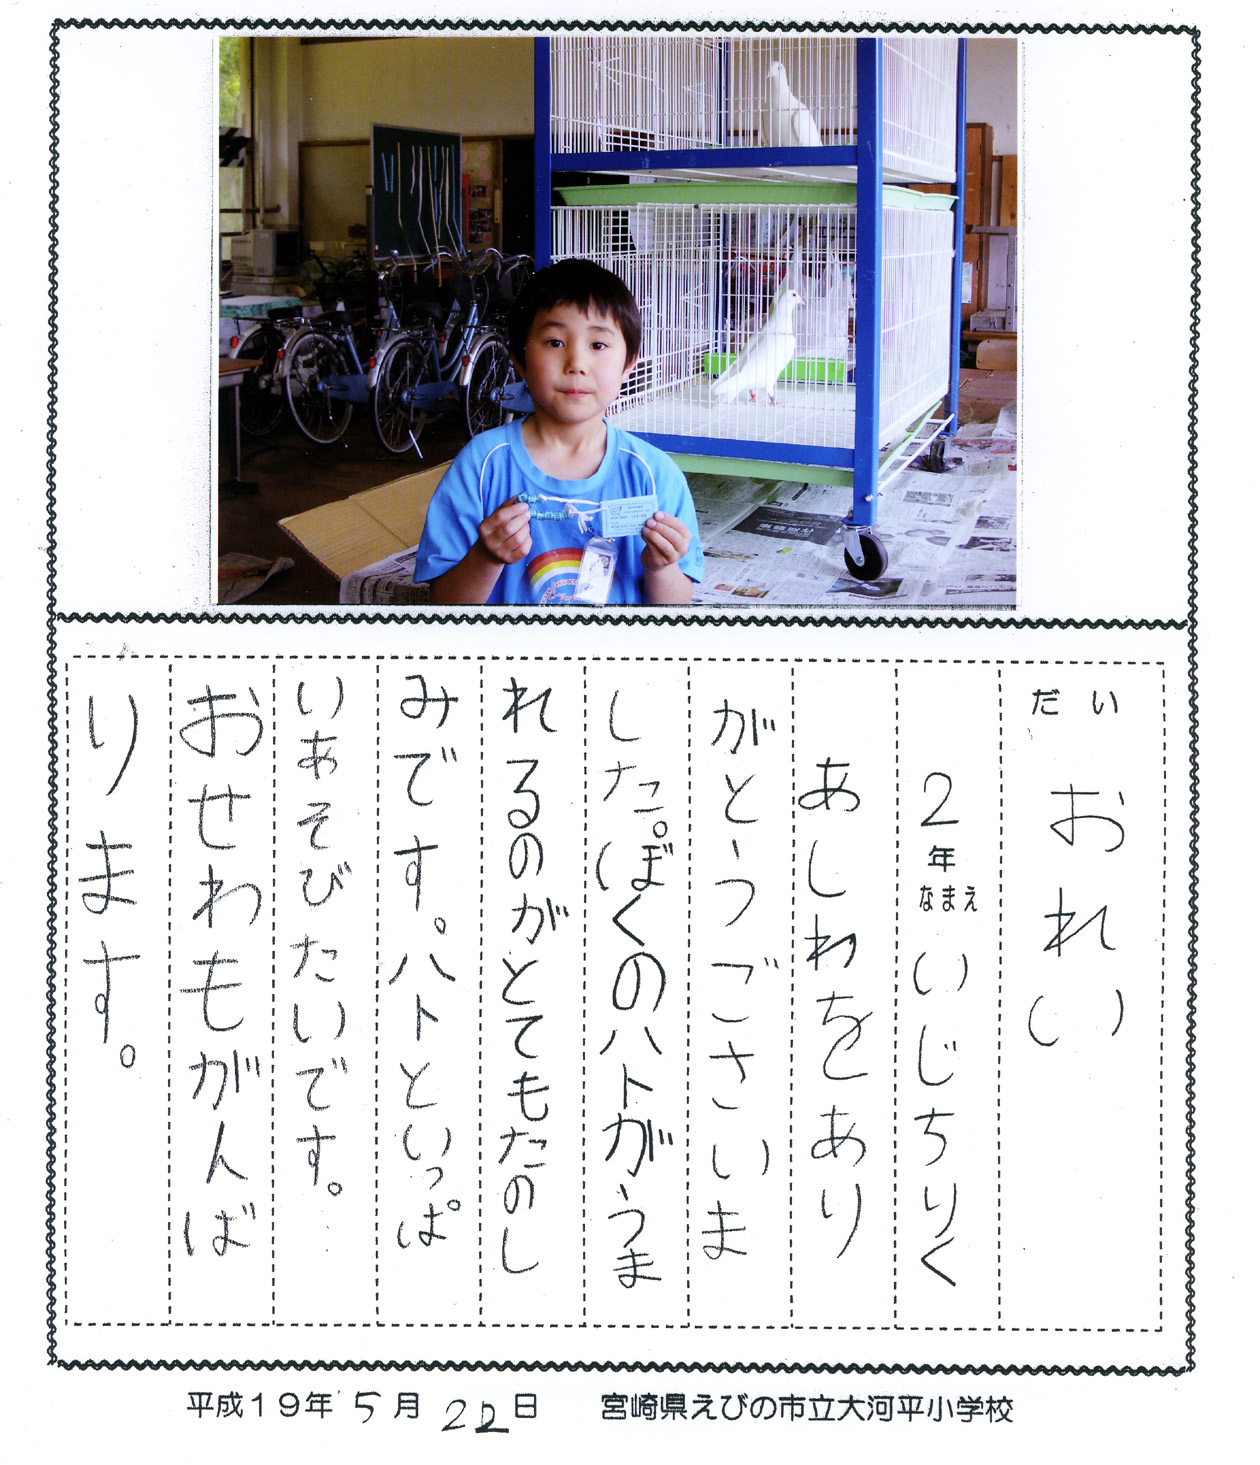 だい おれい
2年 なまえ いじちりく
あしわをあり
がとうごさいま
した。ぼくのハトがうま
れるのがとてもたのし
みです。ハトといっぱ
いあそびたいです。
おせわもがんば
ります。
平成19年 5月 22日 宮崎県えびの市立大河平小学校